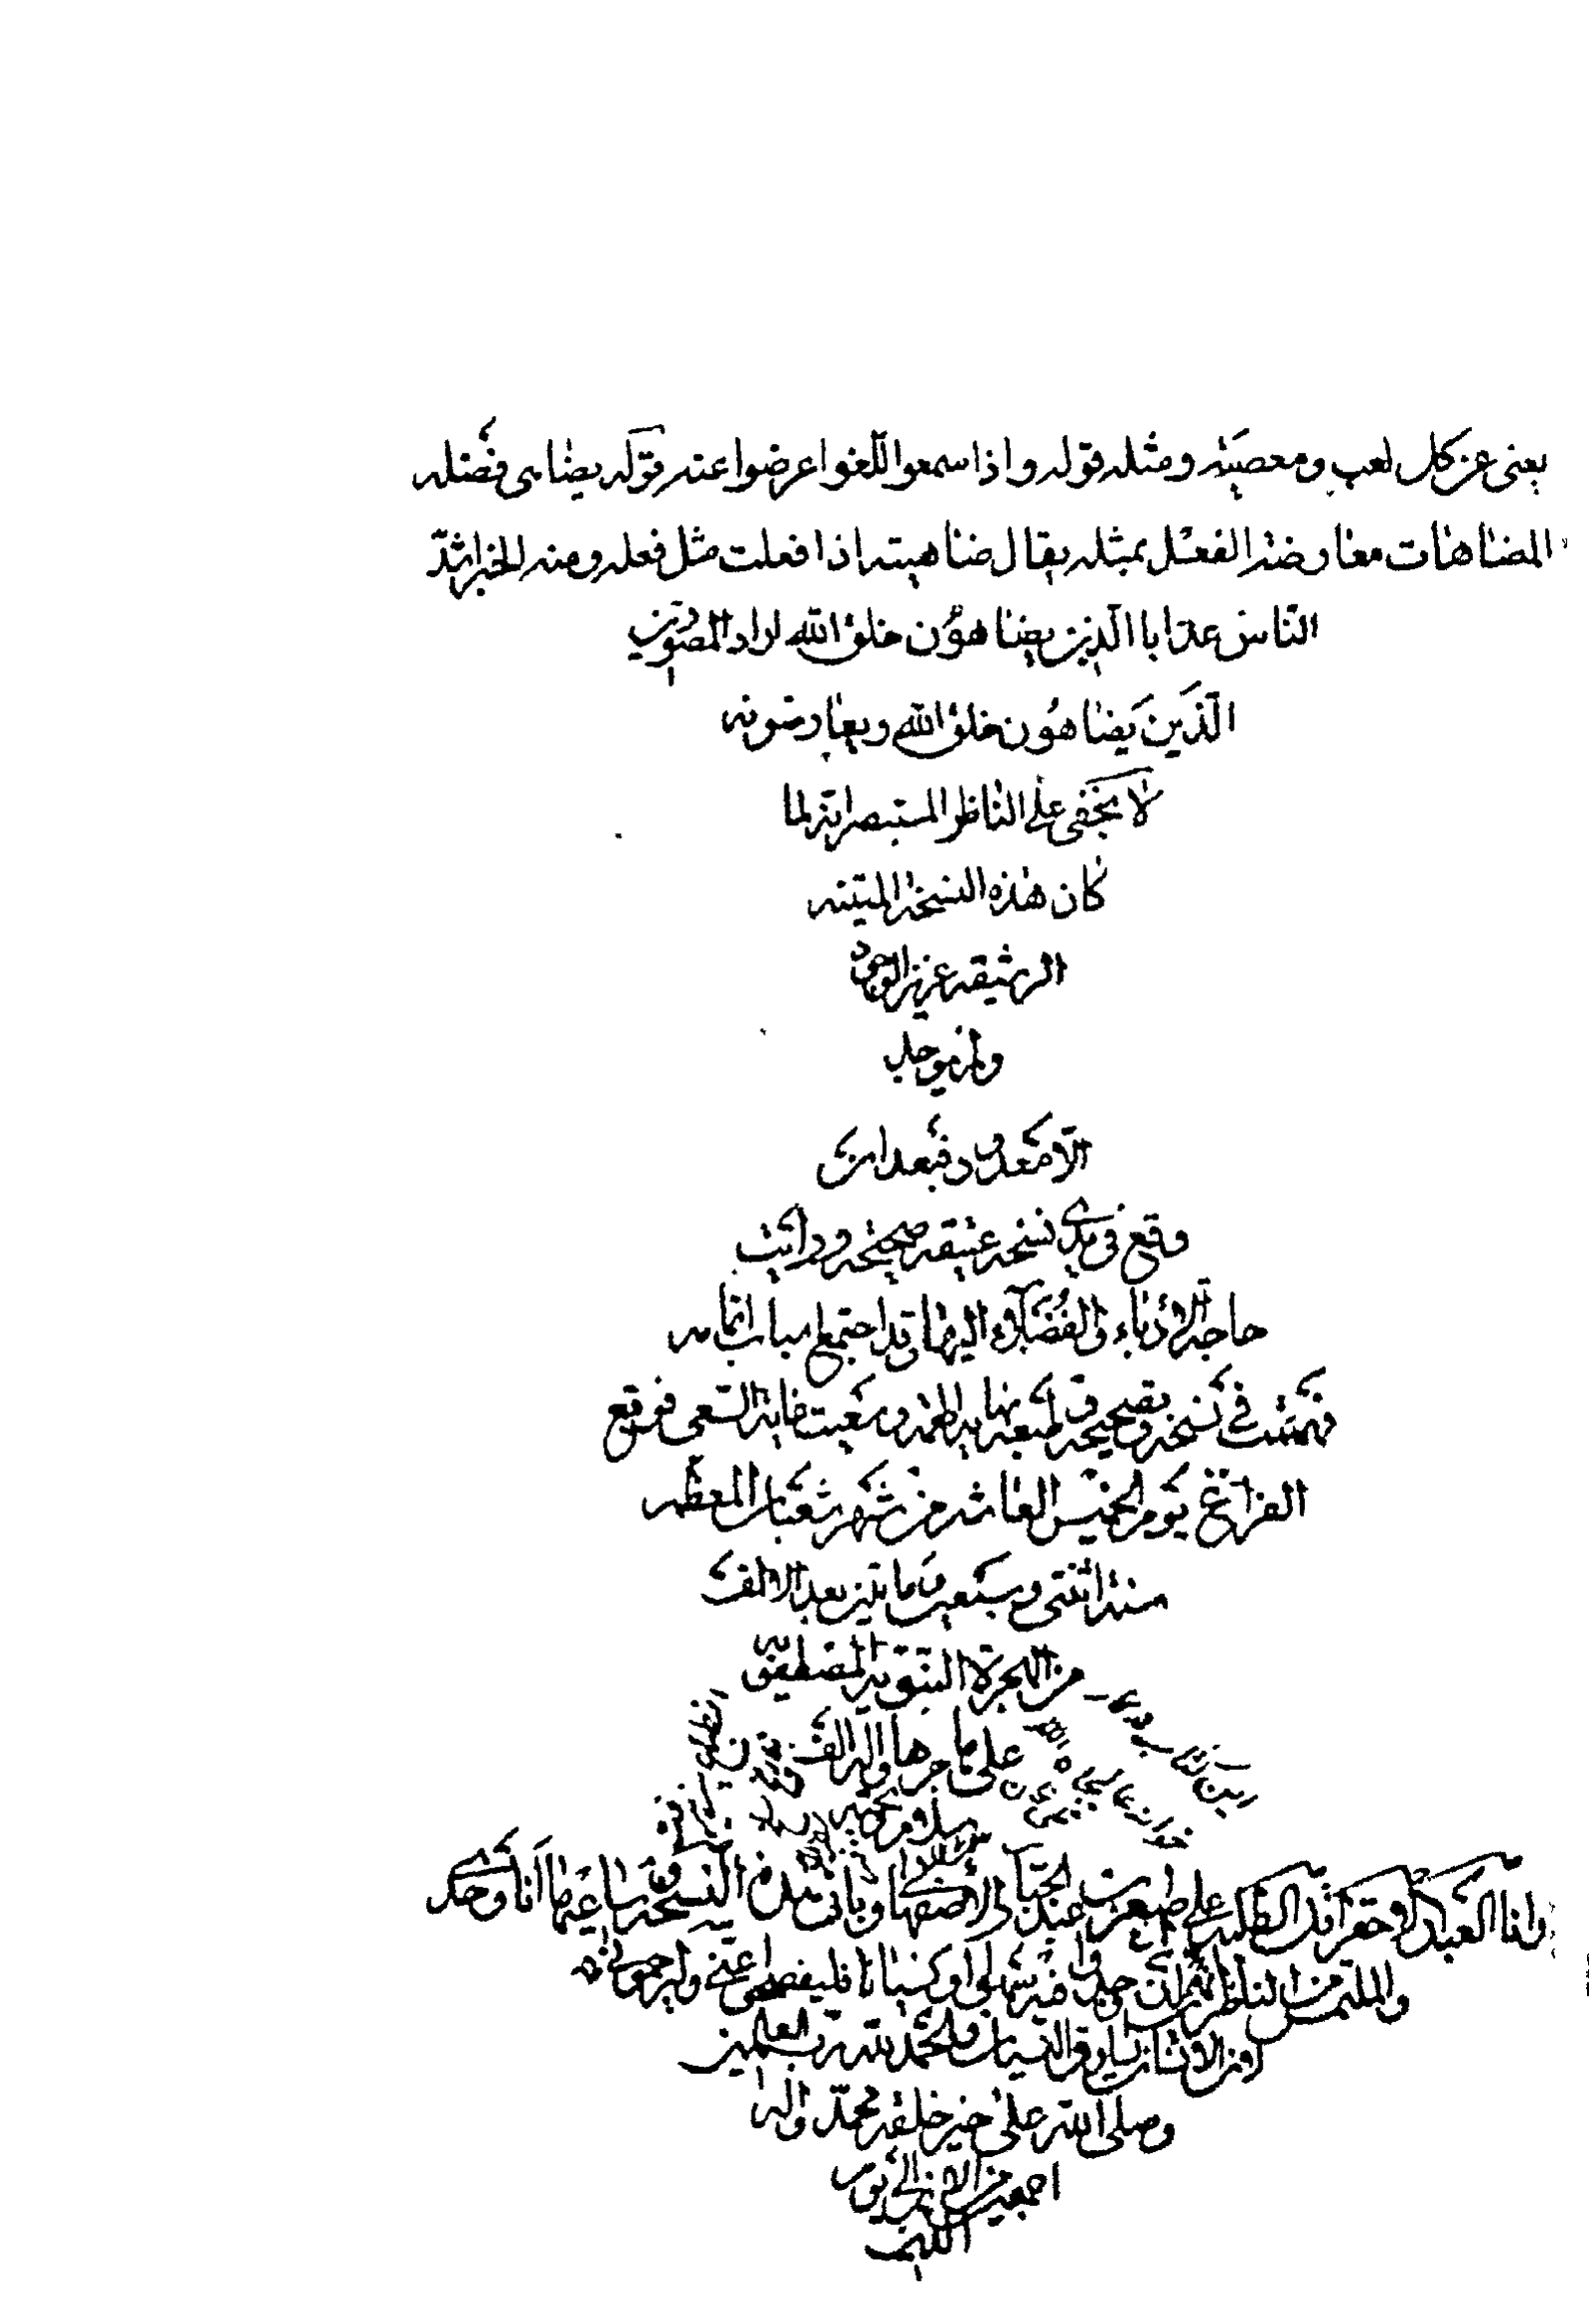 يعنى عن كل لعب ومعصية ومثله قوله واذا سمعوا اللغو اعرضوا عنه قوله يضاهى فضله
المضاهات معارضة الفعل بمثله يقال ضاهيته اذا فعلت مثل فعله ومنه الخبر اشدّ
النّاس عذابا الّذين يضاهؤن خلق الله اراد المصوّرين
الّذين يضاهؤن خلق الله ويعارضونه
لا يخفى على الناظر المستبصر انّه لما
كان هذه النسخة المتينه
الرشيقه عزيز الوجود
ولم يوجد
الّا معدود فبعد ان
وقع فى يدى نسخه عتيقه صحيحه ورأيت
حاجة الادباء والفضلاء اليها وقد اجتمع اسباب اتمامه
فى نسخه وتصحيحه وسعيت غاية السّعى فوقع
الفراغ يوم الخميس العاشر من شهر شعبان المعظم
سنة اثنتى وسبعين وماتين بعد الالف
من الهجرة النبويّة المصطفويّة
على ماجرها واله الف
سلام وتحيه
وانا العبد الاحقر اقل الطلبه على الاصفهانى
والملتمس من الناظرين ان وجدوا فيه سهوا او نسيانا فليغمضوا عنى وليرحمونى
لان الانسان يساوق النسيان والحمد لله ربّ العالمين
وصلى الله على خير خلقه محمّد واله
اجمعين من الان الى يوم
الدين